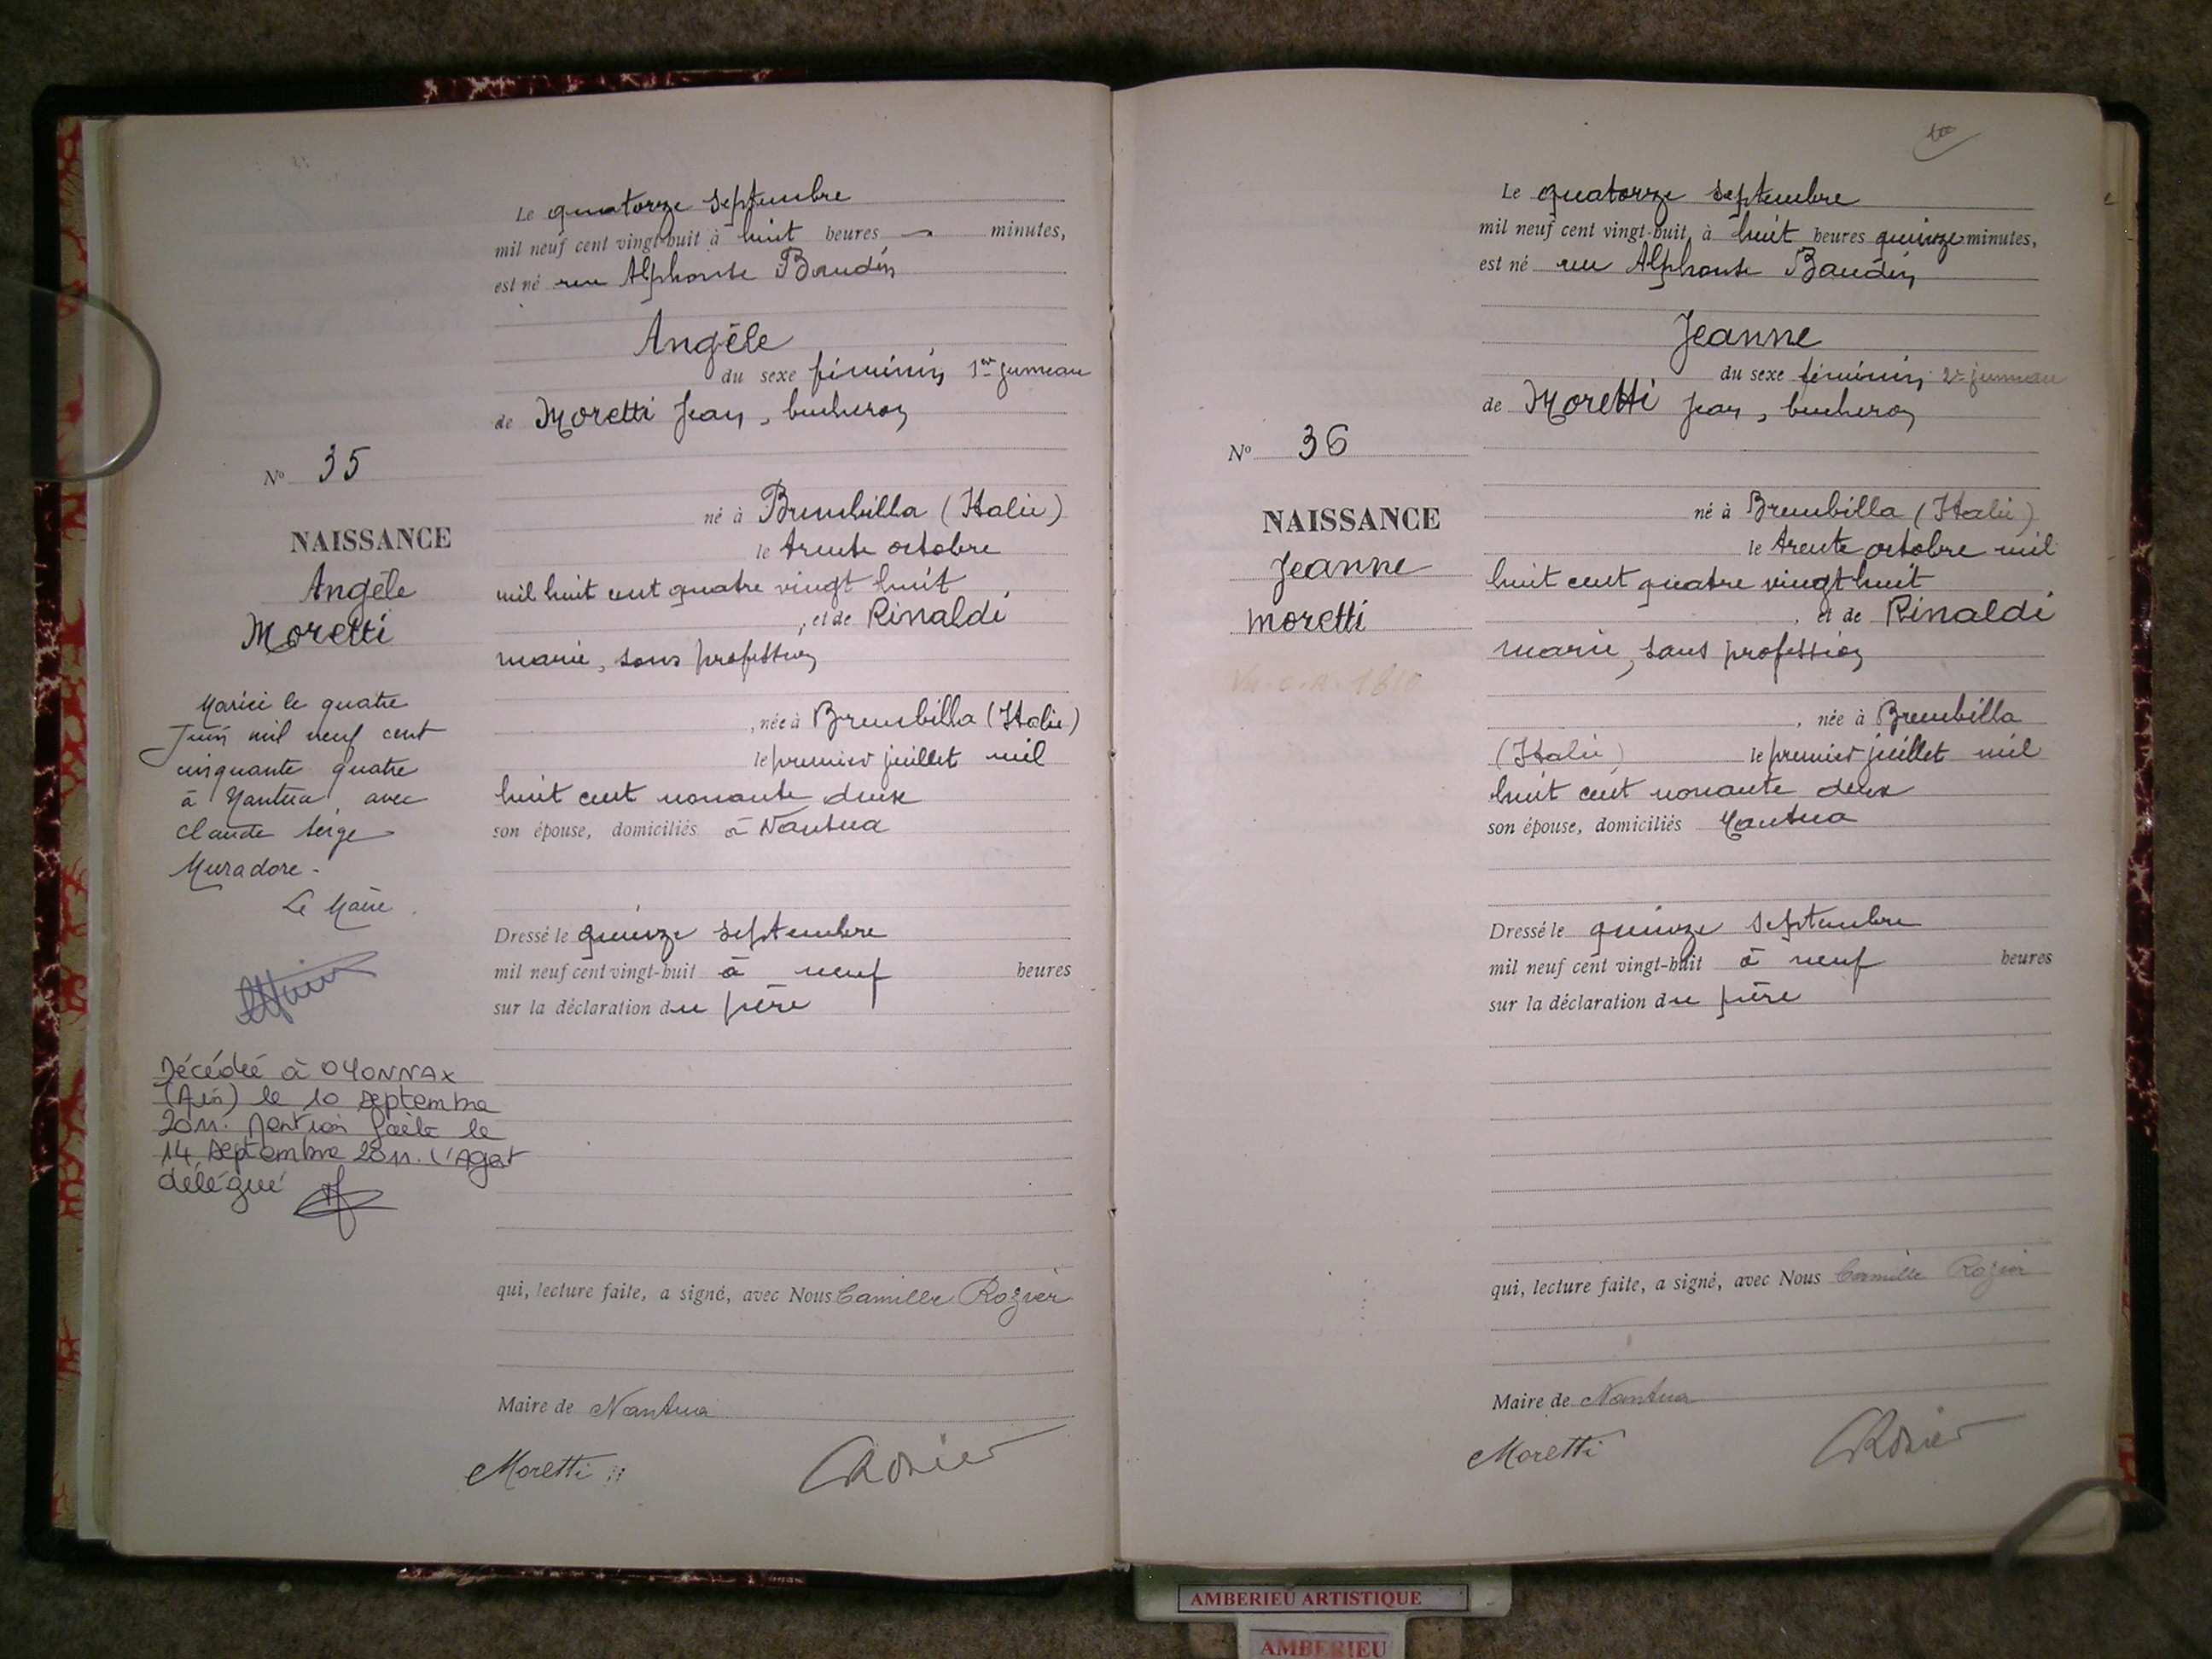 Le quatorze septembre
mil neuf cent vingt-huit à huit heures — minutes,
est né rue Alphonse Baudin
Angèle
du sexe féminin, 1er jumeau
de Moretti Jean, bucheron
né à Brembilla (Italie)
le trente octobre
mil huit cent quatre vingt huit
, et de Rinaldi
marie, sans profession
, née à Brembilla (Italie)
le premier juillet mil
huit cent nonante deux
son épouse, domiciliés à Nantua
Dressé le quinze septembre
mil neuf cent vingt-huit à neuf heures
sur la déclaration du père
qui, lecture faite, a signé, avec Nous Camille Rozier
Maire de Nantua
Moretti
CRozier
No 35
NAISSANCE
Angèle
Moretti
Mariée le quatre
Juin mil neuf cent
cinquante quatre
à Nantua, avec
Claude Serge
Muradore.
Le Maire
Décédée à OYONNAX
(Ain) le 10 septembre
2011. Mention faite le
14 septembre 2011. L'Agent
délégué
Le quatorze septembre
mil neuf cent vingt-huit, à huit heures quinze minutes,
est né rue Alphonse Baudin
Jeanne
du sexe féminin, 2e jumeau
de Moretti Jean, bucheron
né à Brembilla (Italie)
le trente octobre mil
huit cent quatre vingt huit
, et de Rinaldi
marie, sans profession
, née à Brembilla
(Italie) le premier juillet mil
huit cent nonante deux
son épouse, domiciliés Nantua
Dressé le quinze septembre
mil neuf cent vingt-huit à neuf heures
sur la déclaration du père
qui, lecture faite, a signé, avec Nous Camille Rozier
Maire de Nantua
Moretti
CRozier
No 36
NAISSANCE
Jeanne
Moretti
AMBERIEU ARTISTIQUE
AMBERIEU